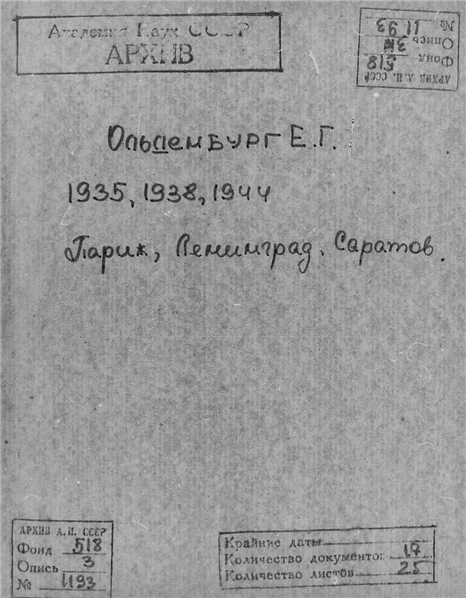 Академия Наук СССР
АРХИВ
АРХИВ А.Н. СССР
Фонд 518
Опись 3
№ 1193
Ольденбург Е.Г.
1935, 1938, 1944
Париж, Ленинград, Саратов.
АРХИВ А.Н. СССР
Фонд 518
Опись 3
№ 1193
Крайние даты
Количество документов: 17
Количество листов 25